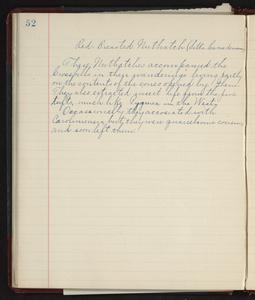 52
Red Breasted Nuthatch (Sitta canadensis)
These Nuthatches accompanied the
Crossbills in their wanderings living partly
on the contents of the cones opened by them.
They also extracted insect life from the pine
tufts, much like Pygmea in the West.
Occasionally they associated with
Carolinensis, but they were quarrelsome cousins
and soon left them.